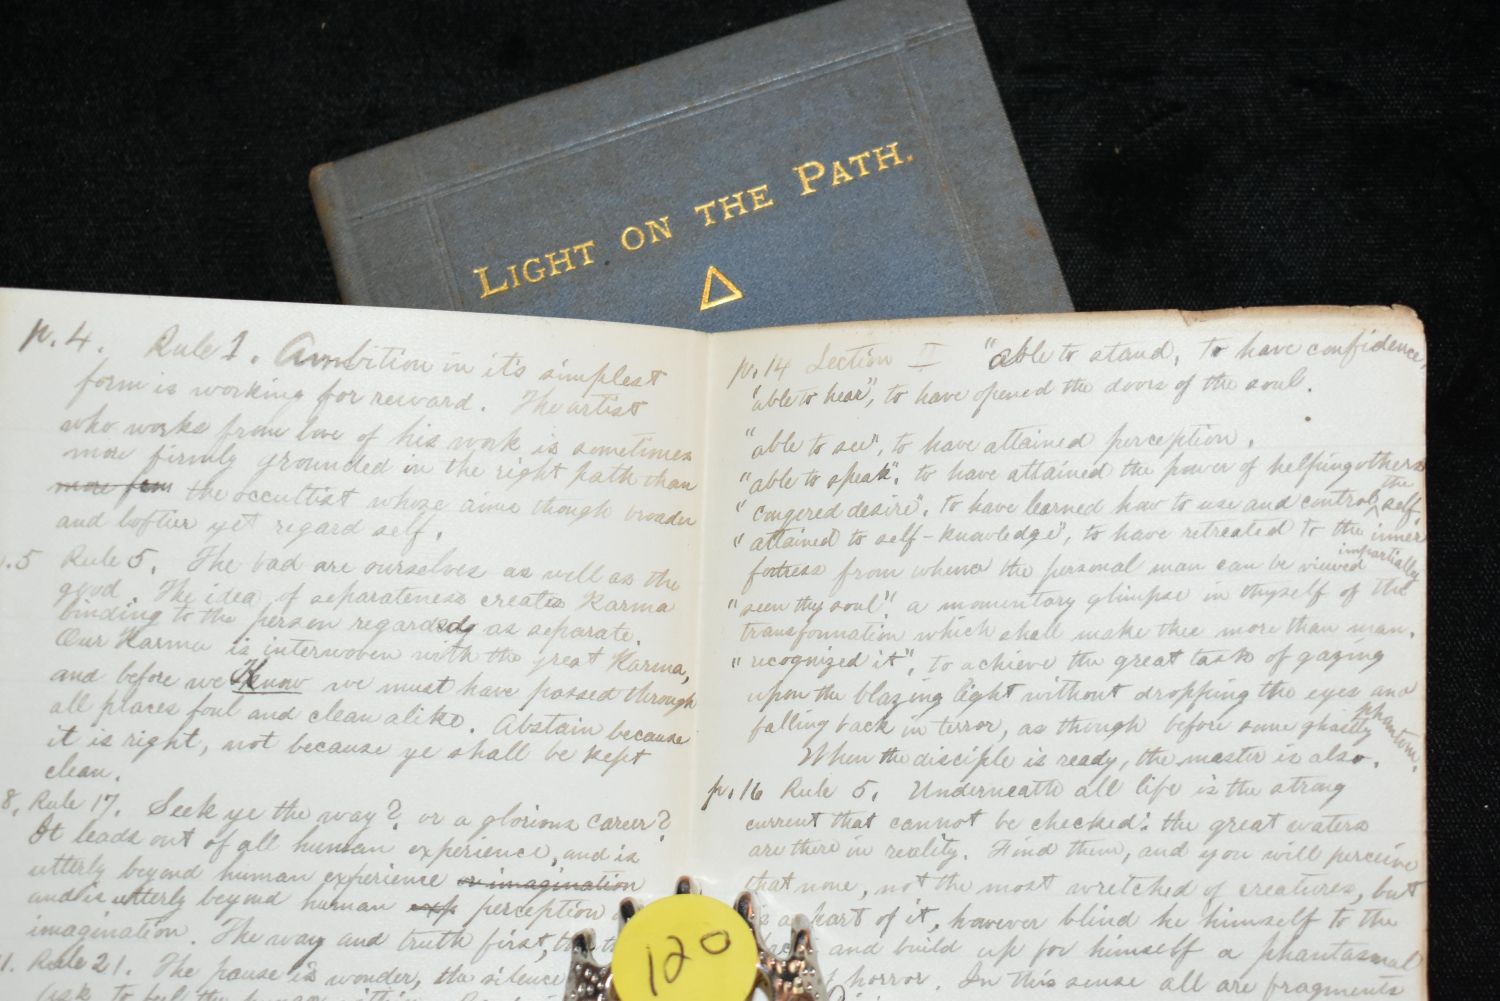 LIGHT ON THE PATH.
p. 4. Rule 1. Ambition in it's simplest
form is working for reward. The artist
who works from love of his work is sometimes
more firmly grounded in the right path than
more firm the occultist whose aims though broader
and loftier yet regard self.
p.5 Rule 5. The bad are ourselves as well as the
good. The idea of separateness creates Karma
binding to the person regarded as separate.
Our Karma is interwoven with the great Karma,
and before we Know we must have passed through
all places foul and clean alike. Abstain because
it is right, not because ye shall be kept
clean.
8. Rule 17. Seek ye the way? or a glorious career?
It leads out of all human experience, and is
utterly beyond human experience or imagination
and is utterly beyond human exp perception
imagination. The way and truth first, the
1. Rule 21. The pause is wonder, the silence
p. 14 Section II "able to stand, to have confidence,
"able to hear", to have opened the doors of the soul.
"able to see", to have attained perception.
"able to speak", to have attained the power of helping others
"congered desire", to have learned how to use and control the self.
"attained to self-knowledge", to have retreated to the inner
fortress from whence the personal man can be viewed impartially
"seen thy soul"! a momentary glimpse in thyself of the
transformation which shall make thee more than man.
"recognized it", to achieve the great task of gazing
upon the blazing light without dropping the eyes and
falling back in terror, as though before some ghastly phantom.
When the disciple is ready, the master is also.
p. 16 Rule 5. Underneath all life is the strong
current that cannot be checked: the great waters
are there in reality. Find them, and you will perceive
that none, not the most wretched of creatures, but
is a part of it, however blind he himself to the
and build up for himself a phantasmal
horror. In this sense all are fragments
120